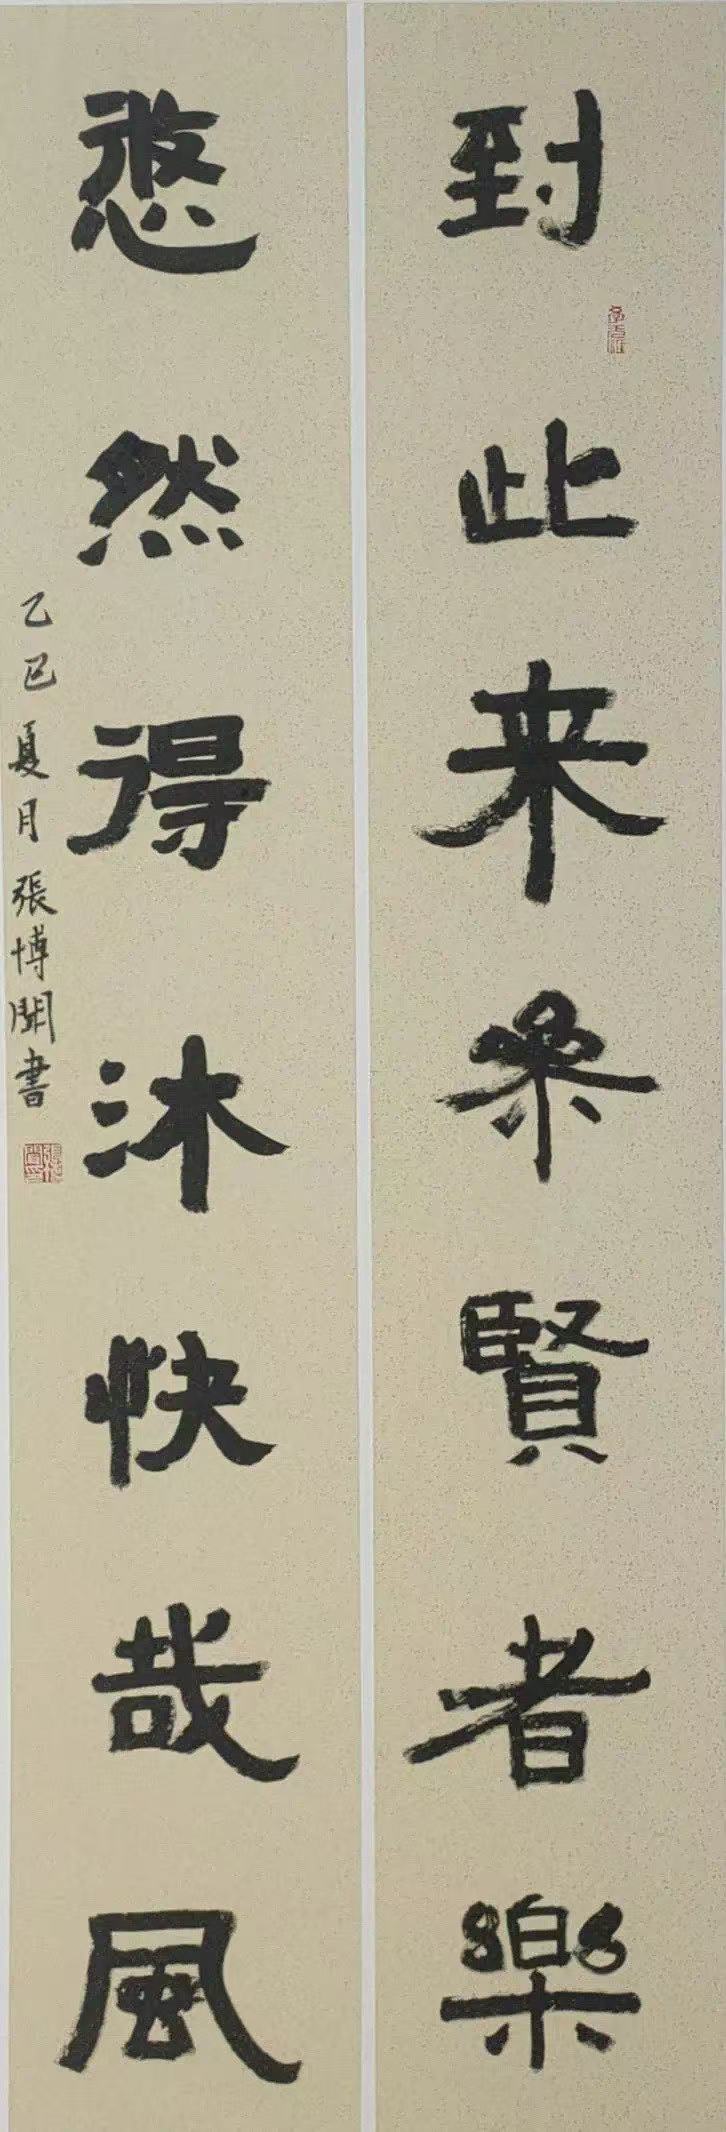 到此来参賢者樂
悠然得沐快哉風
乙巳夏月張博聞書